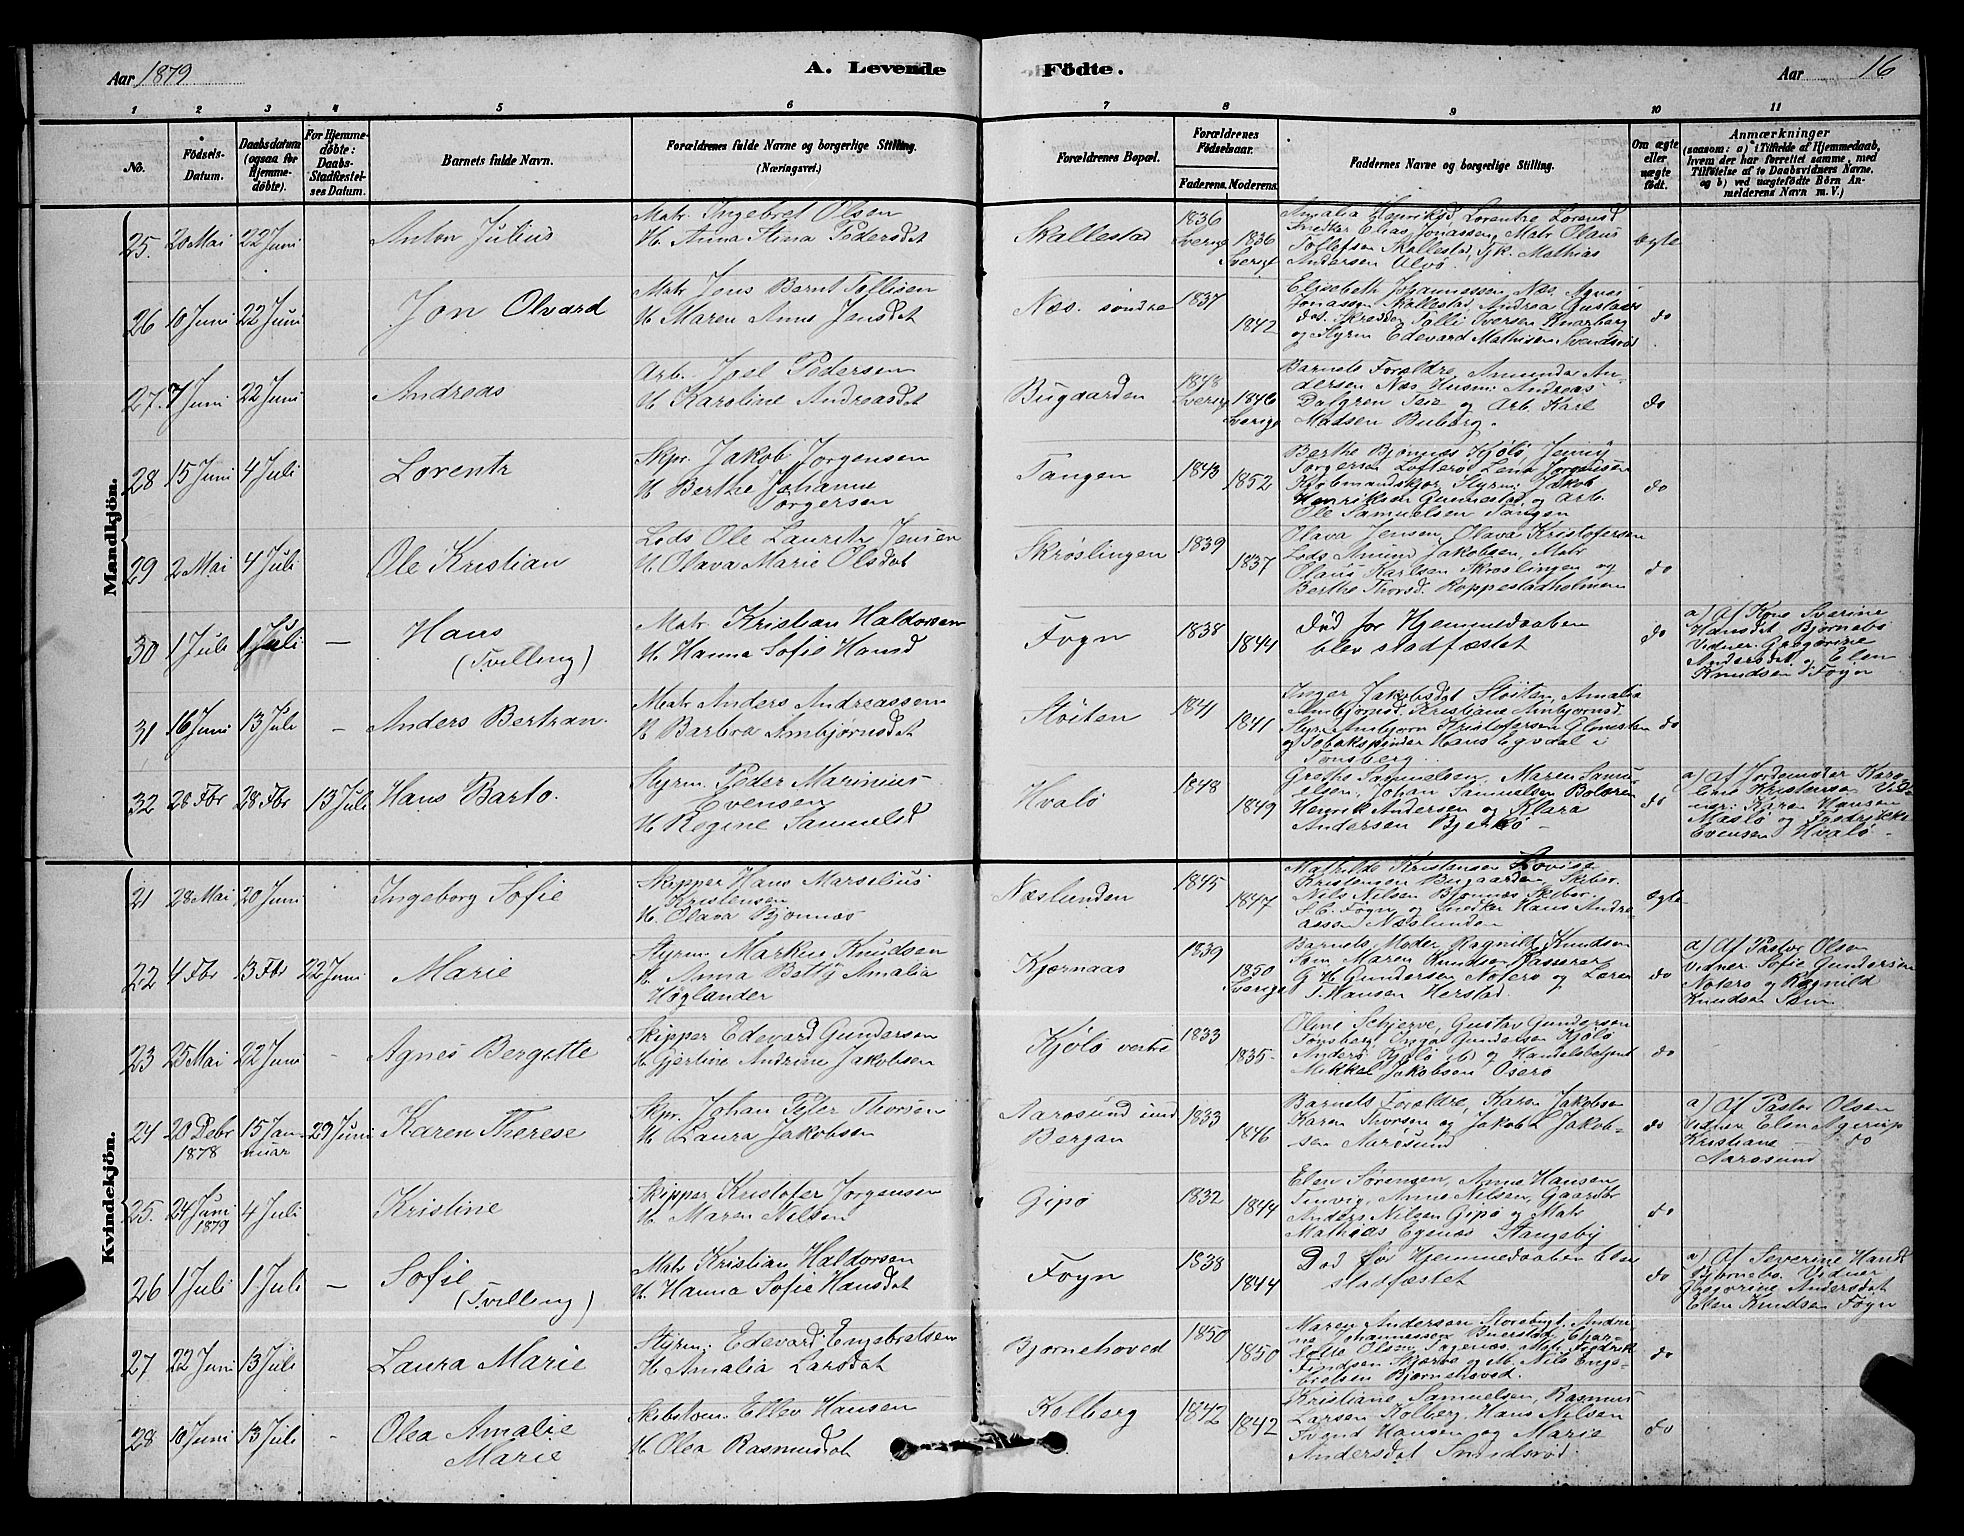 Aar 1879
A. Levende
Födte.
Aar
16
1 2 3 4 5 6 7 8 9 10 11
No.
Födsels-
Datum.
Daabsdatum
(ogsaa for
Hjemme-
døbte).
For Hjemme-
døbte:
Daabs-
Stadfæstel-
ses Datum.
Barnets fulde Navn.
Forældrenes fulde Navne og borgerlige Stilling.
(Næringsvei.)
Forældrenes Bopæl.
Forældrenes
Födselsaar.
Faderens. Moderens.
Faddernes Navne og borgerlige Stilling.
Om ægte
eller
uægte
födt.
Anmærkninger
(saasom: a) i Tilfælde af Hjemmedaab,
hvem der har forrettet samme, med
Tilföielse af to Daabsvidners Navne,
og b) ved uægtefödte Börn An-
melderens Navn m. V.)
Mandkjön.
25. 20 Mai 22 Juni
Anton Julius
Matr. Ingebret Olsen
H. Anna Stina Pedersdat
Skallestad
1836
Sverige
1836
Sverige
Amalia Henriksd, Lorentre Lorensd
Snedker Elias Jonassen, Matr Olaus
Tollefsen Skallestad, Gk. Mathias
Andersen Ulvö.
ægte
26 10 Juni 22 Juni
Jon Olvard
Matr Jens Bernt Tollisen
H. Maren Anne Jensdat
Næs. söndre
1837
1842
Elisebeth Johannessen Næs, Agnes
Jonassen Skallestad, Andrea Gustavs
dat. Skredder Tolli Iversen Knarberg
og Styrm Edevard Mathisen Svendsrød
do
27. 7 Juni 22 Juni
Andreas
Arb. Joel Pedersen
H Karoline Andreasdat
Bugaarden
1848
Sverige
1846
Sverige
Barnets Forældre, Amunda An-
dersen Næs, Husm: Andreas
Dalgren Teie og Arb. Karl
Madsen Buberg.
do
28 15 Juni 4 Juli
Lorentz
Skpr. Jakob Jorgensen
H Berthe Johanne
Torgersen
Tangen
1843
1852
Berthe Bjønnes Kjölö, Jenny
Torgersen Lofterö Lena Jorgensen
Kjøbmandskjær, Styrm: Jakob
Henriksen Gunnestad og Arb.
Ole Samuelsen Tangen
do
29 2 Mai 4 Juli
Ole Kristian
Lods Ole Lauritz Jensen
H. Olava Marie Olsdat
Skrøslingen
1839
1837
Olava Jensen, Olava Kristofersen
Lods Amund Jakobsen, Matr
Olaus Karlsen Skroslingen og
Berthe Thorsd. Roppestadholmen
do
30 1 Juli 1 Juli —
Hans
(Tvilling)
Matr. Kristian Haldorsen
H. Hanna Sofie Hansd
Fogn
1838
1844
Død før Hjemmedaaben
blev stadfæstet
do
a) Af Kone Severine
Hansdat Bjørnebo
Vidner: Gregorine
Andersdat og Elen
Knudsen Føgn
31 16 Juni 13 Juli —
Anders Bertran.
Matr Anders Andreassen
H Barbra Ambjørnsdat
Stöiten
1841
1841
Inger Jakobsdat Støiten, Amalia
Ambjørnsd. Kristiane Ambjornsd.
Styr Ambjørn Kristofersen Olmesten
og Tobakspinder Hans Egvaal i
Tønsberg.
do
32 28 Fbr 28 Fbr 13 Juli
Hans Barto.
Styrm. Peder Marinius
Evensen
H Regine Samuelsd
Hvalö
1848
1849
Grethe Samuelsen, Maren Samu-
elsen, Johan Samuelsen Bolæren
Henrik Andersen og Klara
Andersen Bjerkö —
do
a) Af Jordemoder Karo-
line Kristensen Vid-
ner: Karen Hansen
Masló og Fredrikke
Evensen Hvalö
Kvindekjön.
21 28 Mai 20 Juni
Ingeborg Sofie
Skipper Hans Marselius
Kristensen
H. Olava Bjønnes
Næslunden
1845
1847
Mathilde Kristensen Lovise
Kristensen Bugaarden, Skibsr.
Nils Nilsen Bjønnes, Skibsr
S. C. Fogn og Snedker Hans Andre-
assen Næslunden
ægte
22 4 Fbr 13 Fbr 22 Juni
Marie
Styrm. Markus Knudsen
H. Anna Betty Amalia
Höglander
Kjærnaas
1839
1850
Sverige
Barnets Moder, Ragnild Knudsen
Sem Maren Knudsen Kasserer
G H. Gundersen Noterö og Loren
T. Hansen Herstad.
do
a) Af Pastor Olsen
Vidner Sofie Gundersen
Notero og Ragnild
Knudsen Sem
23 25 Mai 22 Juni -
Agnes Bergette
Skipper Edevard Gundersen
H. Gjertine Andrine Jakobsen
Kjölö vestre
1833
1835-
Oline Schjerve, Gustav Gundersen
Tønsberg, Inga Gundersen Kjölö
Anders Kjölö ibd og Handelsbetjent
Mikkel Jakobsen Oserö
do
24 20 Debr 1878 15 Januar 29 Juni
Karen Therese
Skpr. Johan Peter Thorsen
H Laura Jakobsen
Aarosund und
Bergan
1833
1846
Barnets Forældre, Karen Jakobsen
Karen Thorsen og Jakob L Jakob-
sen Aarösund
do
a) Af Pastor Olsen
Vidner Elen Agerup
Kristiane — do
Aarosund
25. 24 Juni 1879 4 Juli
Kristine
Skipper Kristofer Jorgensen
H. Maren Nilsen
Gipö
1832
1844
Elen Sorensen, Anne Hansen
Tinvig, Anne Nilsen, Gaardbr
Anders Nilsen Gipö og Matr
Mathias Egenes Stangeby
do
26 1 Juli 1 Juli —
Sofie
(Tvilling)
Matr Kristian Haldorsen
H. Hanna Sofie Hansdat
Fogn
1838
1844
Død før Hjemmedaaben blev
stadfæstet
do
a) Af Severine Hansd
Bjørnebo. Vidner
Gregorine Andersdat
Elen Knudsen Føgn
27 22 Juni 13 Juli
Laura Marie
Styrm: Edevard Engebretsen
H. Amalia Larsdat
Bjørnehoved
1850
1850
Maren Andersen Storebugt. Andri-
ne Johannessen Buerstad, Char-
lotte Olsen, Matr. Fredrik
Findsen Skjærve og M. Nils Enge-
bretsen Bjørnehoved.
do
28 10 Juni 13 Juli -
Olea Amalie
Marie
Skibstøm. Ellev Hansen
H. Olea Rasmusdat
Kolberg
1842
1842
Kristiane Samuelsen, Rasmus
Larsen Kolberg, Hans Nilsen
Svend Hansen og Marie
Andersdat Smidsrød.
do